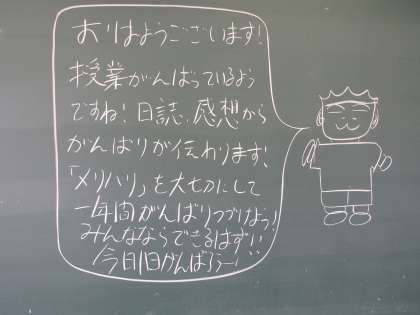 おはようございます!
授業がんばっているよう
ですね!日誌、感想から
がんばりが伝わります!
「メリハリ」を大切にして
一年間がんばりつづけよう!
みんなならできるはず!!
今日1日がんばろうー!